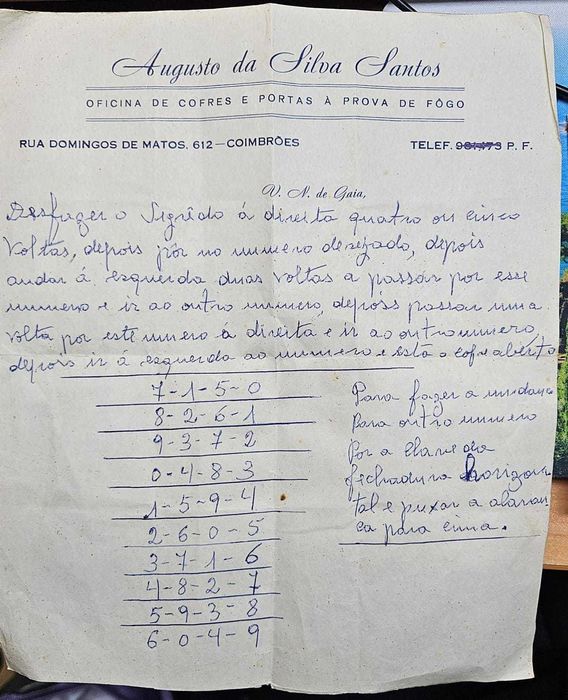 Augusto da Silva Santos
OFICINA DE COFRES E PORTAS À PROVA DE FÔGO
RUA DOMINGOS DE MATOS, 612 — COIMBRÕES TELEF. 981473 P. F.
V. N. de Gaia,
Desfazer o Segrêdo á direita quatro ou cinco
voltas, depois pôr no numero desejado, depois
andar á esquerda duas voltas a passar por esse
numero e ir ao outro numero, depois passar uma
volta por este numero á direita e ir ao outro numero,
depois ir á esquerda ao numero e está o cofre aberto
7-1-5-0
8-2-6-1
9-3-7-2
0-4-8-3
1-5-9-4
2-6-0-5
3-7-1-6
4-8-2-7
5-9-3-8
6-0-4-9
Para fazer a mudança
Para outro numero
Por a chave da
fechadura horizon
tal e puxar a alavan
ca para cima.